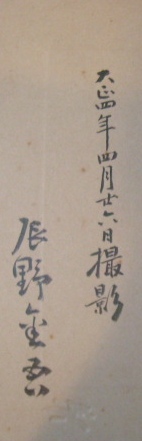 大正四年四月廿六日撮影
辰野金吾